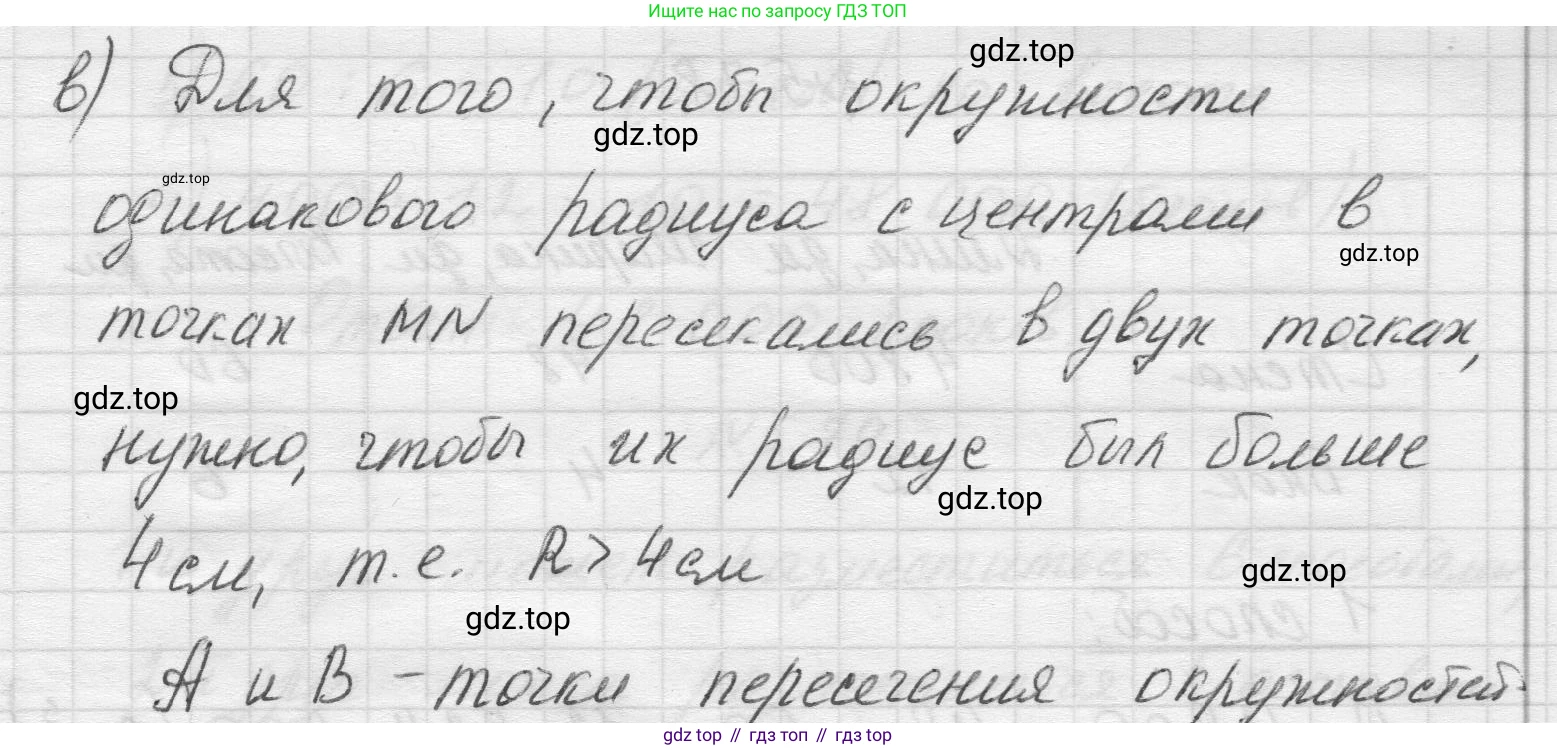 Ищите нас по запросу ГДЗ ТОП
gdz.top
в) Для того, чтобы окружности
gdz.top
gdz.top
одинакового радиуса с центрами в
gdz.top
точках MN пересекались в двух точках,
gdz.top
нужно, чтобы их радиус был больше
gdz.top
4 см, т.е. R > 4 см
gdz.top
gdz.top
A и B - точки пересечения окружностей.
gdz top // гдз топ // гдз top